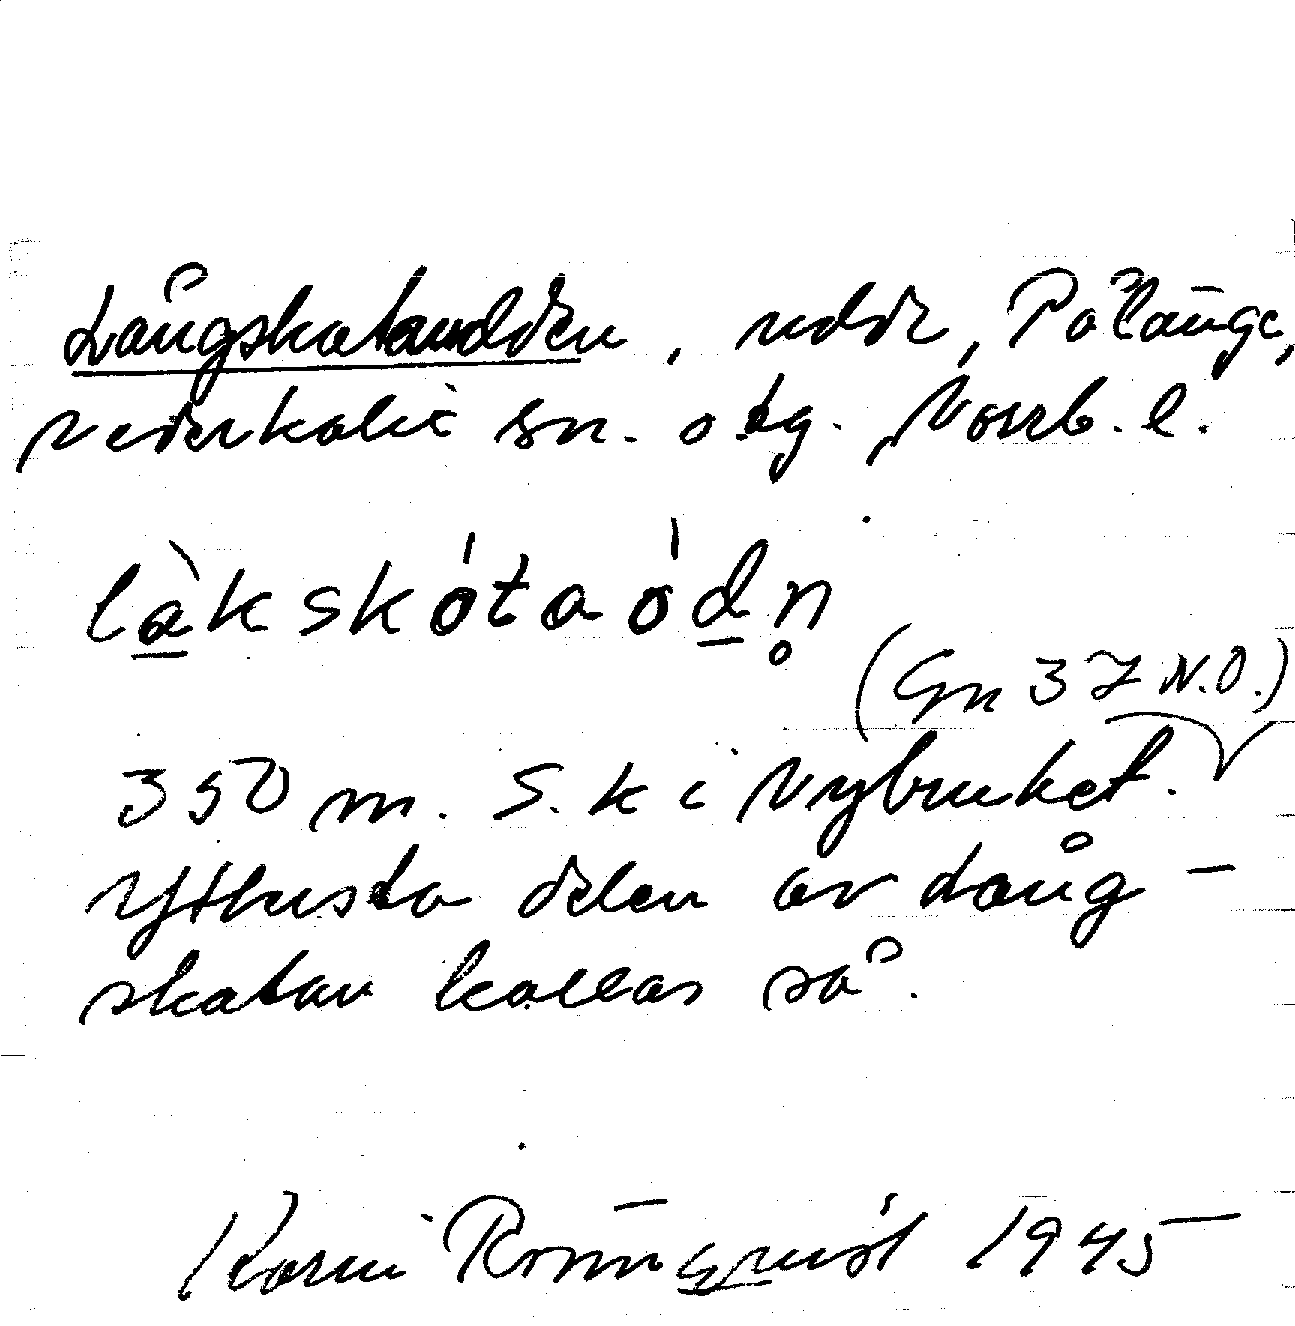 Långskataudden, udde, Pålänge,
Nederkalix sn. o tg. Norrb. l.
làkskótaódn̥
(Gn 37 N.O.)
350 m. S. k i Nybruket.
Yttersta delen av Lång-
skatan kallas så.
Karin Rönnqvist 1945